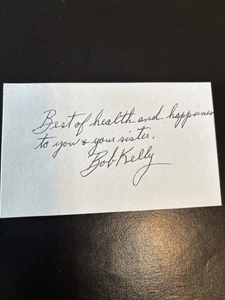 Best of health and happiness
to you & your sister.
Bob Kelly